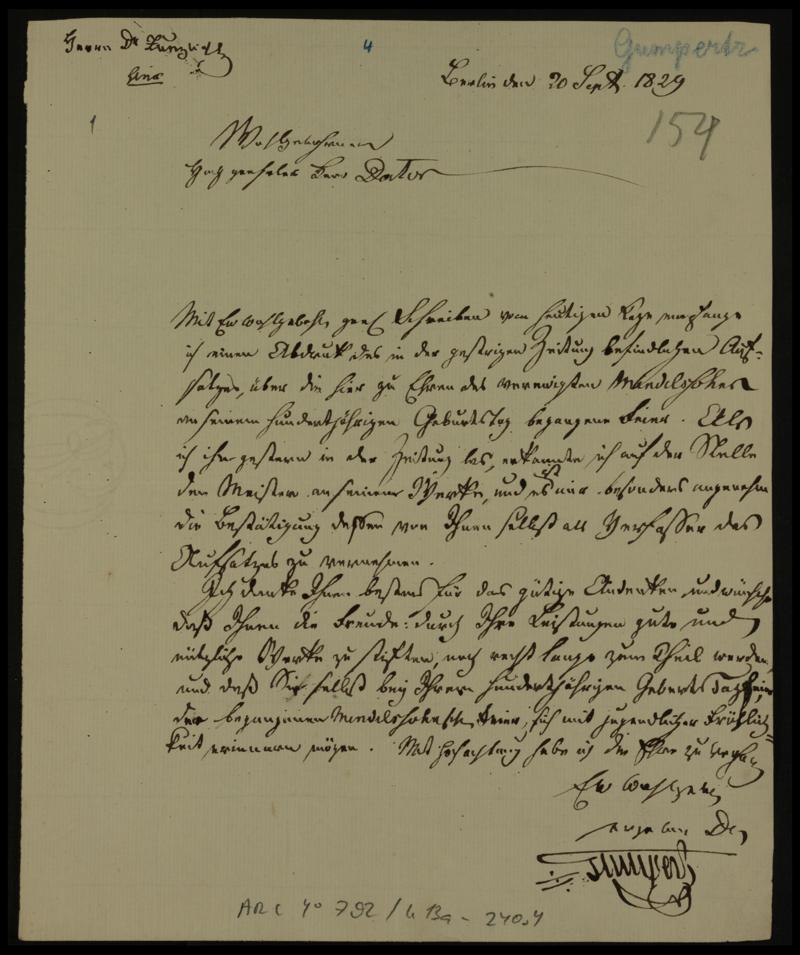 Herrn Dr Zunz
hier
4
Gumpertz
Berlin den 20 Sept. 1829
154
1
Wohlgeborener
Hochgeehrter Herr Doctor
Mit Ew Wohlgebohr. geeh. Schreiben vom heutigen Tage empfange
ich einen Abdruck des in der gestrigen Zeitung befindlichen Auf-
satzes, über die hier zu Ehren des verewigten Mendelssohns
an seinem hundertjährigen Geburtstag begangene Feier. Als
ich ihn gestern in der Zeitung las, erkannte ich auf der Stelle
den Meister an seinem Werke, und es ist mir besonders angenehm
die Bestätigung dessen von Ihnen selbst als Verfasser des
Aufsatzes zu vernehmen.
Ich danke Ihnen bestens für das gütige Andenken und wünsche
daß Ihnen die Freude: durch Ihre Leistungen gute und
nützliche Werke zu stiften, noch recht lange zum Theil werden,
und daß Sie selbst bey Ihrem hundertjährigen Geburts Tag
der begangenen Mendelssohnschen Feier, sich mit jugendlicher Fröhlich-
keit erinnern mögen. Mit Hochachtung habe ich die Ehre zu
Ew Wohlgeb
ergebener
Gumpertz
ARC 4° 792 /